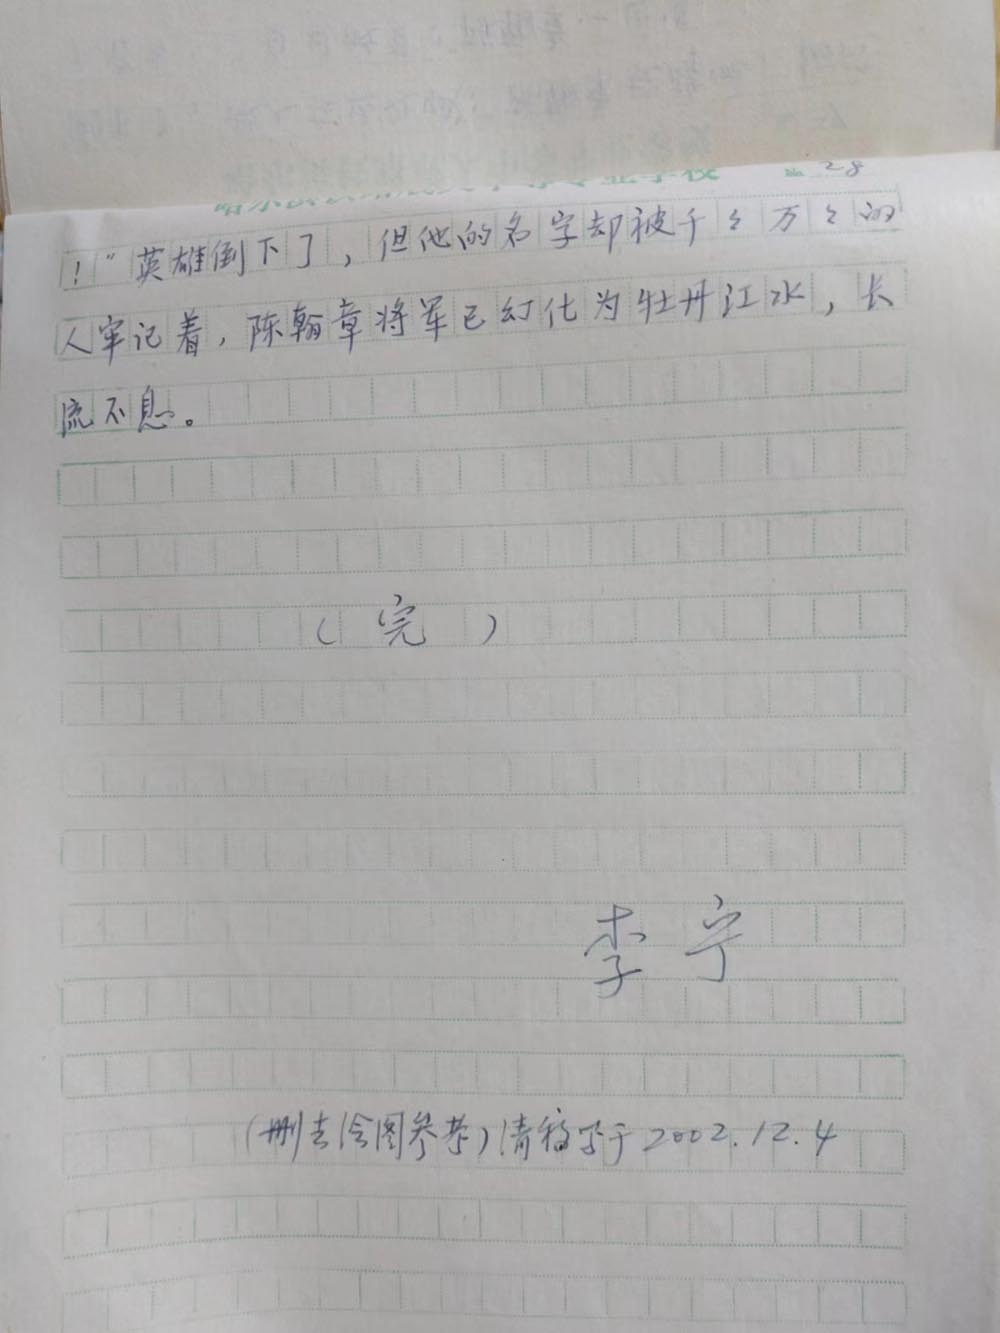 28
！”英雄倒下了，但他的名字却被千々万々的
人牢记着，陈翰章将军已幻化为牡丹江水，长
流不息。
（完）
李宁
（删去绘图参考）清稿写于2002.12.4